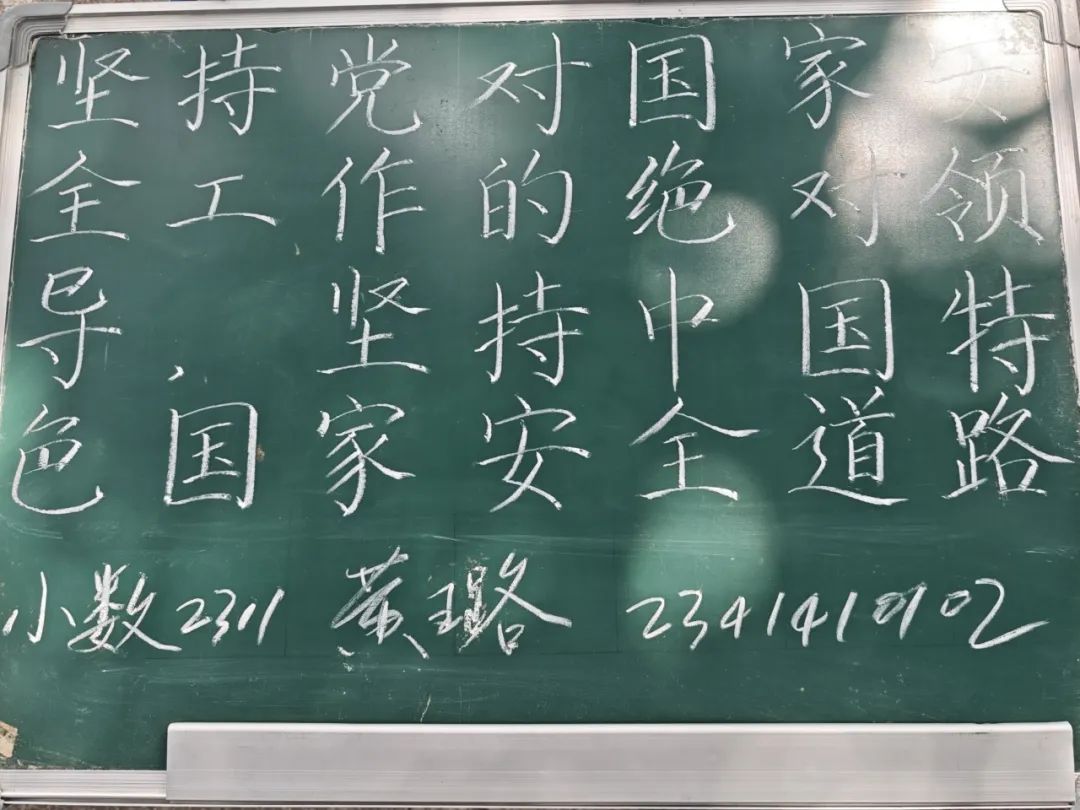 坚持党对国家安
全工作的绝对领
导，坚持中国特
色国家安全道路
小数2311 黄璐 2341410102